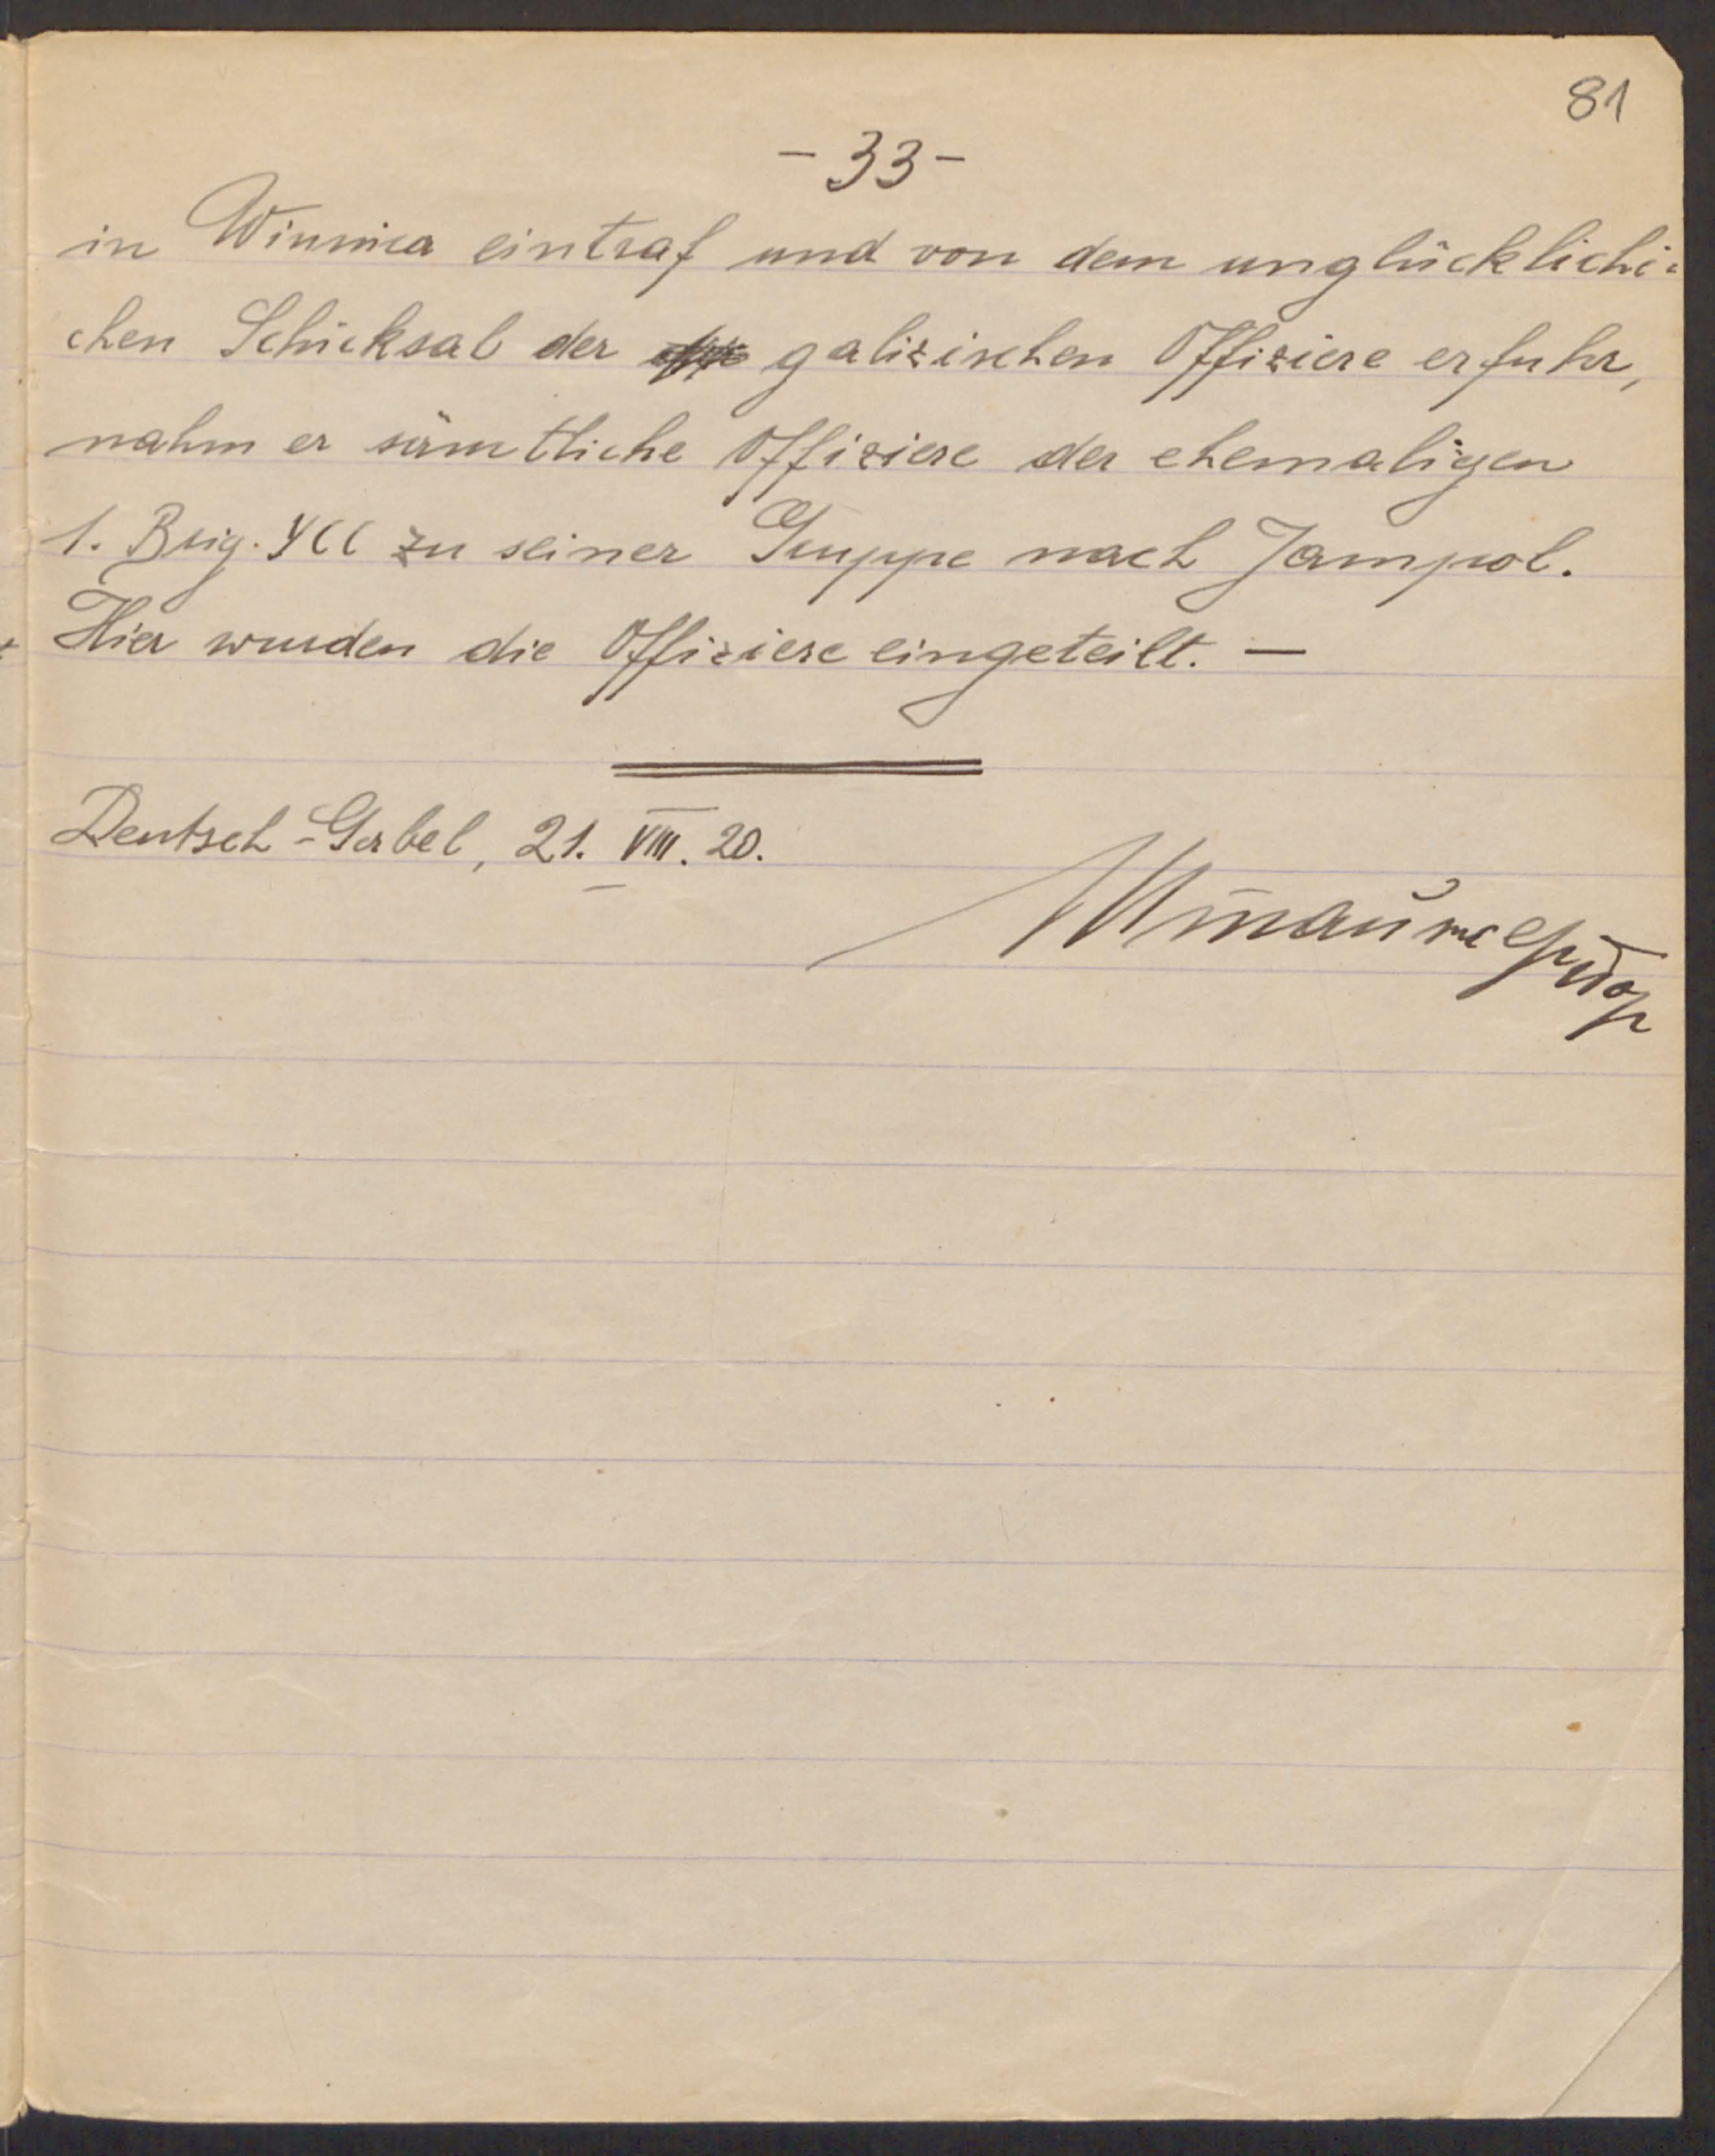 81
- 33 -
in Winnica eintraf und von dem unglücklichi-
chen Schicksal der galizischen Offiziere erfuhr,
nahm er sämtliche Offiziere der ehemaligen
1. Brig. УСС zu seiner Gruppe nach Jampol.
Hier wurden die Offiziere eingeteilt. —
Deutsch-Gabel, 21. VIII. 20.